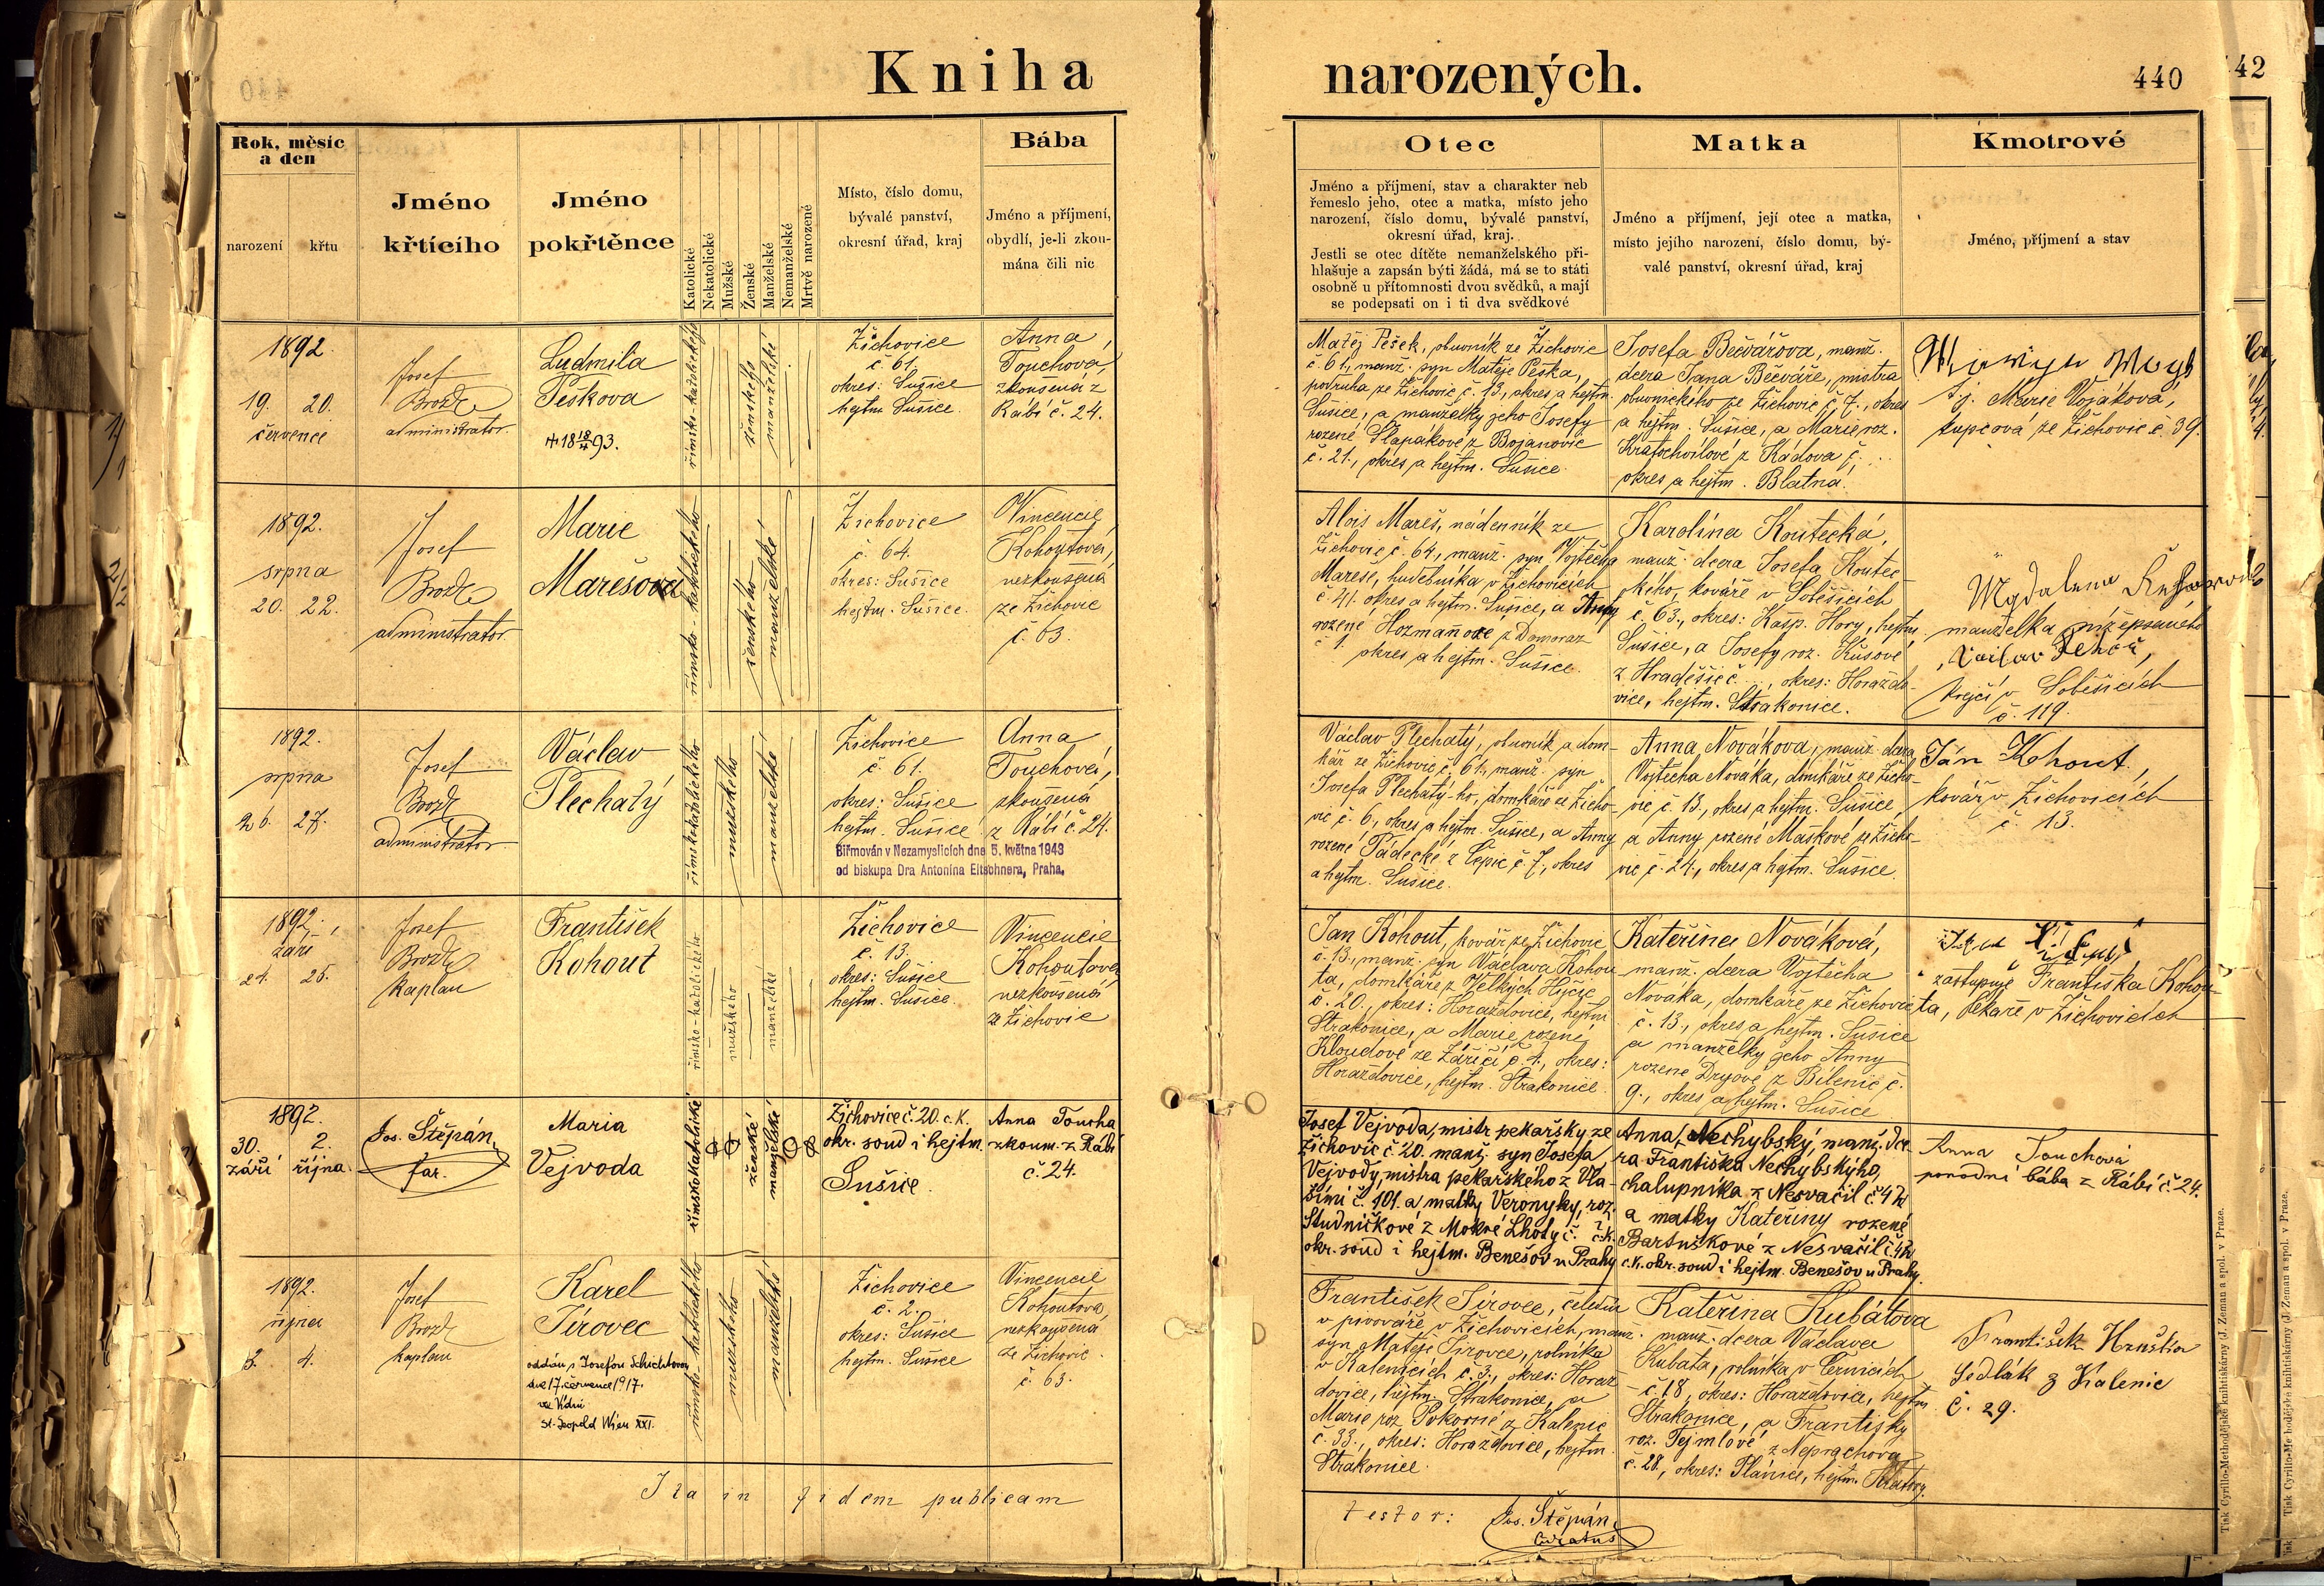 Kniha narozených.
440
42
Rok, měsíc
a den
narození
křtu
Jméno
křtícího
Jméno
pokřtěnce
Katolické
Nekatolické
Mužské
Ženské
Manželské
Nemanželské
Mrtvě narozené
Místo, číslo domu,
bývalé panství,
okresní úřad, kraj
Bába
Jméno a příjmení,
obydlí, je-li zkou-
mána čili nic
Otec
Jméno a příjmení, stav a charakter neb
řemeslo jeho, otec a matka, místo jeho
narození, číslo domu, bývalé panství,
okresní úřad, kraj.
Jestli se otec dítěte nemanželského při-
hlašuje a zapsán býti žádá, má se to státi
osobně u přítomnosti dvou svědků, a mají
se podepsati on i ti dva svědkové
Matka
Jméno a příjmení, její otec a matka,
místo jejího narození, číslo domu, bý-
valé panství, okresní úřad, kraj
Kmotrové
Jméno, příjmení a stav
1892.
19. 20.
července
Josef
Brož
administrator.
Ludmila
Peškova
římsko-katolického
ženského
manželské
Žichovice
č. 61.
okres: Sušice
hejtm. Sušice.
Anna
Touchova,
zkoušená z
Rábí č. 24.
Matěj Pešek, obuvník ze Žichovic
č. 61, manž. syn Matěje Peška,
podruha ze Žichovic č. 13., okres a hejtm.
Sušice, a manželky jeho Josefy
rozené Šlapákové z Bojanovic
č. 21., okres a hejtm. Sušice.
Josefa Bečvářova, manž.
dcera Jana Bečváře, mistra
obuvnického ze Žichovic č. 7., okres
a hejtm. Sušice, a Marie roz.
Kratochvílové z Kádova č. ...
okres a hejtm. Blatná.
tj. Marie Vojáková,
kupcová ze Žichovic č. 39.
1892.
srpna
20. 22.
Josef
Brož
administrator.
Marie
Marešova
římsko-katolického
ženského
manželské
Žichovice
č. 64.
okres: Sušice
hejtm. Sušice.
Vincencie
Kohoutová,
nezkoušená
ze Žichovic
č. 63.
Alois Mareš, nádenník ze
Žichovic č. 64, manž. syn Vojtěcha
Mareše, hudebníka v Žichovicích
č. 41. okres a hejtm. Sušice, a Anny
rozené z Domoraz
č. 1. okres a hejtm. Sušice.
Karolína Koutecká,
manž. dcera Josefa Koutec-
kého, kováře v Soběšicích
č. 63., okres: Kašp. Hory, hejtm.
Sušice, a Josefy roz. Kůsové
z Hradešic č. ..., okres: Horažďo-
vice, hejtm. Strakonice.
Magdalena
manželka nížepsaného
Václav Řehoř,
krejčí v Soběšicích
č. 119.
1892.
srpna
26. 27.
Josef
Brož
administrator
Václav
Plechatý
římskokatolického
mužského
manželské
Žichovice
č. 61.
okres: Sušice
hejtm. Sušice
Anna
Touchová,
zkoušená
z Rábí č. 24.
Biřmován v Nezamyslicích dne 5. května 1943
od biskupa Dra Antonína Eltschnera, Praha.
Václav Plechatý, obuvník a dom-
kář ze Žichovic č. 61., manž. syn
Josefa Plechatý-ho, domkáře ze Žicho-
vic č. 6, okres a hejtm. Sušice, a Anny
rozené Pádecké z Čepic č. 7, okres
a hejtm. Sušice.
Anna Novákova, manž. dcera
Vojtěcha Nováka, domkáře ze Žicho-
vic č. 13., okres a hejtm. Sušice
a Anny, rozené Maškové ze Žicho-
vic č. 24., okres a hejtm. Sušice.
Ján Kohout,
kovář v Žichovicích
č. 13.
1892.
září
24. 25.
Josef
Brož
kaplan
František
Kohout
římsko-katolického
mužského
manželské
Žichovice
č. 13.
okres: Sušice
hejtm. Sušice.
Vincencie
Kohoutová
nezkoušená
ze Žichovic
Jan Kohout, kovář ze Žichovic
č. 13., manž. syn Václava Kohou
ta, domkáře z Velkých Hyčic
č. 20., okres: Horažďovice, hejtm.
Strakonice, a Marie rozené
Kloudové ze Záříčí č. 1., okres:
Horažďovice, hejtm. Strakonice.
Kateřina Nováková,
manž. dcera Vojtěcha
Nováka, domkáře ze Žichovic
č. 13., okres a hejtm. Sušice
a manželky jeho Anny
rozené Dryové z Bílenic č.
9., okres a hejtm. Sušice
zastupuje Františka Kohou-
ta, pekaře v Žichovicích
1892.
30. 2.
září října.
Jos. Štěpán,
far.
Maria
Vejvoda
římskokatolické
ženské
manželské
Žichovice č. 20. c. k.
okr. soud i hejtm.
Sušice.
Anna Toucha
zkoum. z Rábí
č. 24.
Josef Vejvoda, mistr pekařský ze
Žichovic č. 20. manž. syn Josefa
Vejvody, mistra pekařského z Vla-
šimi č. 101. a matky Veronyky, roz.
Studničkové z Mokré Lhoty č. ? c. k.
okr. soud i hejtm. Benešov u Prahy
Anna Nechybský, manž. dce-
ra Františka Nechybskýho,
chalupníka z Nesvačil č. 42
a matky Kateřiny rozené
Bartuškové z Nesvačil č. 42
c. k. okr. soud i hejtm. Benešov u Prahy.
Anna Touchová
porodní bába z Rábí č. 24.
1892.
října
3. 4.
Josef
Brož
kaplan
Karel
Jírovec
oddán s Josefou Schichtovou
dne 17. července 1917.
ve Vídni
St. Leopold Wien XXI.
římsko-katolického
mužského
manželské
Žichovice
č. 2.
okres: Sušice
hejtm. Sušice
Vincencie
Kohoutova
nezkoušená
ze Žichovic
č. 63.
František Jírovec, čeledín
v pivováře v Žichovicích, manž.
syn Matěje Jírovce, rolníka
v Kalenicích č. 3, okres: Horaž-
dovice, hejtm. Strakonice, a
Marie roz. Pokorné z Kalenic
č. 33., okres: Horažďovice, hejtm.
Strakonice.
Kateřina Kubátova
manž. dcera Václava
Kubata, rolníka v Černicích
č. 18, okres: Horažďovice, hejtm.
Strakonice, a Františky
roz. Tejmlové z Neprachova
č. 28., okres: Plánice, hejtm. Klatovy.
František Hruška
Sedlák z Kalenic
č. 29.
Ita in fidem publicam
testor: Jos. Štěpán,
Curatus
Tisk Cyrillo-Methodějské knihtiskárny (J. Zeman a spol. v Praze.
Tisk Cyrillo-Methodějské knihtiskárny (J. Zeman a spol. v Praze.